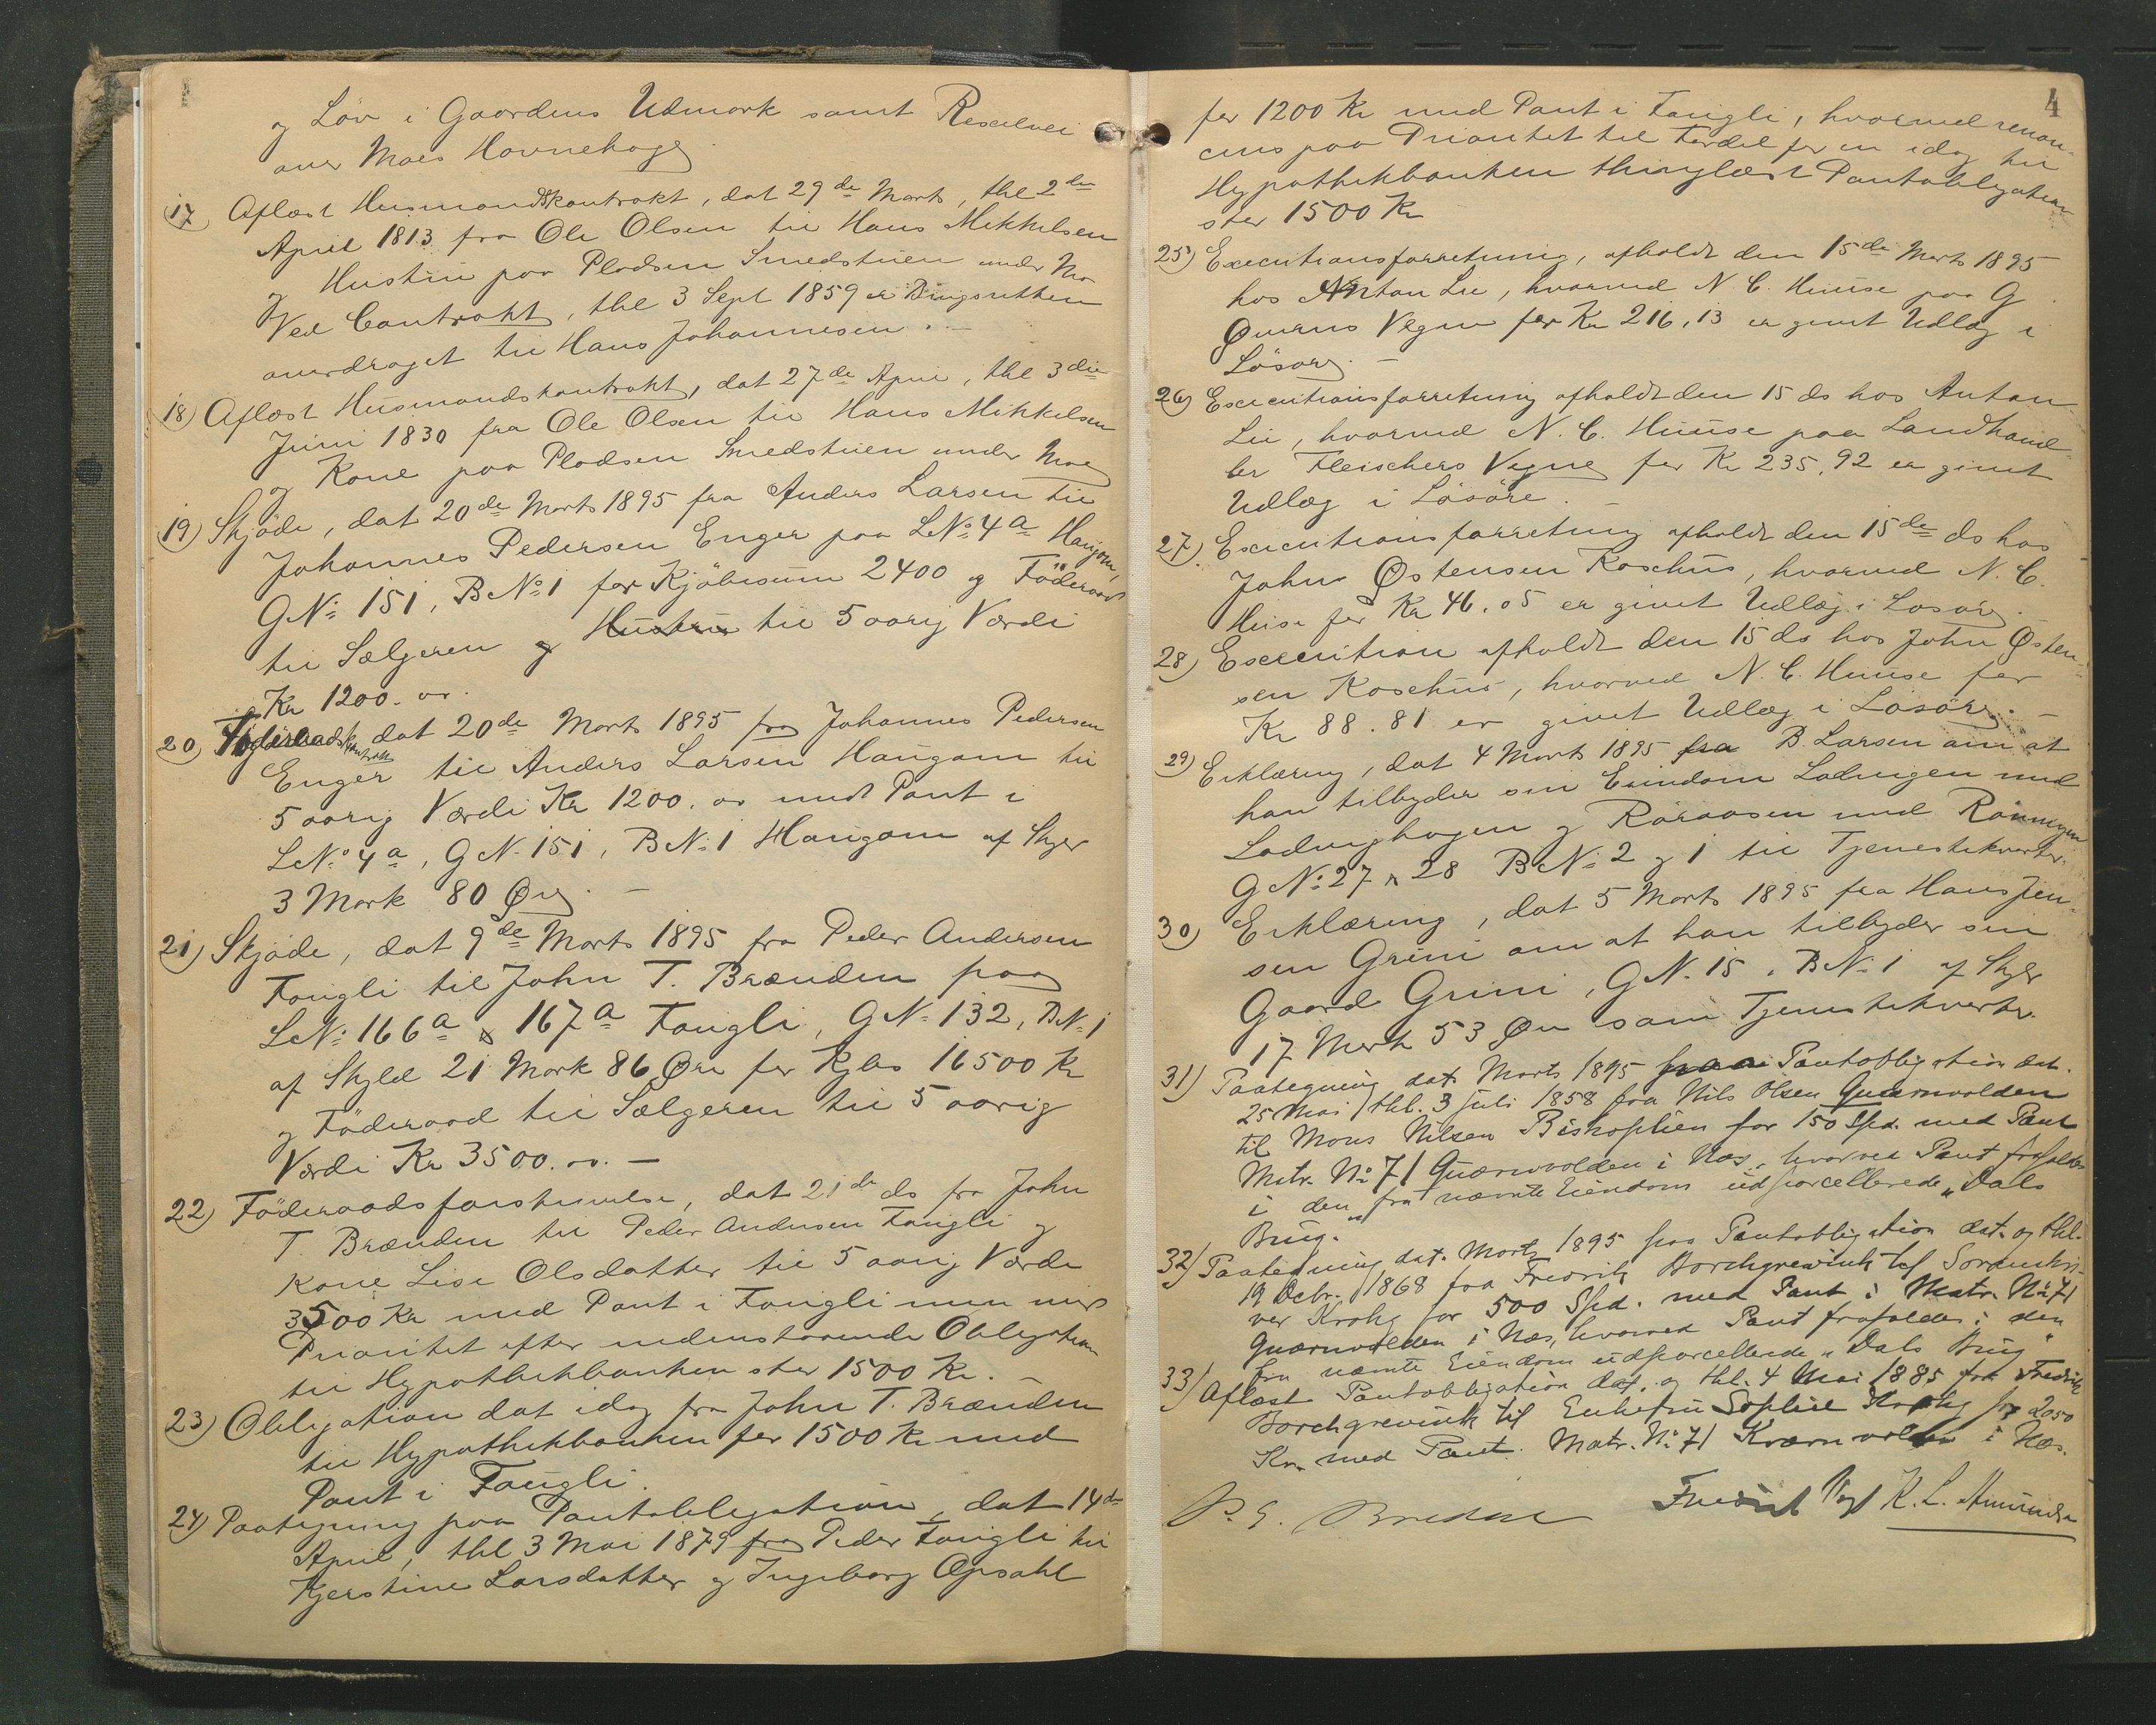 og Löv i Gaardens Udmark samt
over Moes Havnehage
17) Aflæst Husmandskontrakt, dat 29de Marts, thl 2den
April 1813 fra Ole Olsen til Hans Mikkelsen
og Hustru paa Pladsen Smedstuen under Mo
Ved Contrakt, thl 3 Sept 1859 er Brugsretten
overdraget til Hans Johannesen. -
18) Aflæst Husmandskontrakt, dat 27de April, thl 3die
Juni 1830 fra Ole Olsen til Hans Mikkelsen
og Kone paa Pladsen Smedstuen under Moe
19) Skjöde, dat 20de Marts 1895 fra Anders Larsen til
Johannes Pedersen Enger paa LNo 4a Haugom,
GNo 151, BNo 1 for Kjöbesum 2400 og Föderaad
til Sælgeren og Hustru til 5 aarig Værdi
Kr 1200. oo.
20) Föderaadskontrakt dat 20de Marts 1895 fra Johannes Pedersen
Enger til Anders Larsen Haugom til
5 aarig Værdi Kr 1200. oo med Pant i
LNo 4a, GN. 151, BNo 1 Haugom af Skyld
3 Mark 80 Øre. -
21) Skjöde, dat 9de Marts 1895 fra Peder Andersen
Fougli til John T. Brænden paa
LNo 166a & 167a Fougli, GNo 132, BNo 1
af Skyld 21 Mark 86 Øre for Kjbs 16500 Kr
og Föderaad til Sælgeren til 5 aarig
Værdi Kr 3500. oo. -
22) Föderaadsforskrivelse, dat 21de ds fra John
T. Brænden til Peder Andersen Fougli og
Kone Lise Olsdatter til 5 aarig Værdi
3500 Kr med Pant i Fougli men med
Prioritet efter nedenstaaende Obligation
til Hypothekbanken stor 1500 Kr. -
23) Obligation dat idag fra John T. Brænden
til Hypothekbanken for 1500 Kr med
Pant i Fougli.
24) Paategning paa Pantobligation, dat 14de
April, thl 3 Mai 1879 fra Peder Fougli til
Kjerstine Larsdatter og Ingeborg Opsahl
4
for 1200 Kr med Pant i Fougli, hvorved renon-
ceres paa Prioritet til Fordel for en idag til
Hypothekbanken thinglæst Pantobligation
stor 1500 Kr
25) Executionsforretning, afholdt den 15de Marts 1895
hos Anton Lie, hvorved N. C. Huuse paa G
Qverns Vegne for Kr 216,13 er givet Udlæg i
Lösöre. -
26) Executionsforretning afholdt den 15 ds hos Anton
Lie, hvorved N. C. Huuse paa Landhand-
ler Fleischers Vegne for Kr 235,92 er givet
Udlæg i Lösöre. -
27) Executionsforretning afholdt den 15de ds hos
John Østensen Koschus, hvorved N. C.
Huse for Kr 46.05 er givet Udlæg i Losöre.
28) Execution afholdt den 15 ds hos John Østen-
sen Koschus, hvorved N. C. Huuse for
Kr 88.81 er givet Udlæg i Lösöre. -
29) Erklæring, dat 4 Marts 1895 fra B. Larsen om at
han tilbyder sin Eiendom Ladingen med
Ladinghagen og Röraasen med Rönningen
GNo 27 & 28 BNo 2 og 1 til Tjenestekvarter.
30) Erklæring, dat 5 Marts 1895 fra Hans Jen-
sen Grini om at han tilbyder sin
Gaard Grini, GN. 15, BNo 1 af Skyld
17 Mark 53 Øre som Tjenestekvarter.
31) Paategning dat. Marts 1895 paa Pantobligation dat.
25 Mai thl. 3 Juli 1858 fra Nils Olsen Quærnvolden
til Mons Nilsen Biskoplien for 150 Spd. med Pant
Matr. No 71 Quærnvolden i Næs, hvorved Pant frafaldes
i den fra nævnte Eiendom udparcellerede "Dals
Brug.
32) Paategning dat. Marts 1895 paa Pantobligation dat. og thl.
19 Octbr. 1868 fra Fredrik Borchgrewink til Sorenskri-
ver Krohg for 500 Spd. med Pant i Matr. No 71
Quærnvolden i Næs, hvorved Pant frafaldes i den
fra nævnte Eiendom udparcellerede "Dals Brug"
33) Aflæst Pantobligation dat. og thl. 4 Mai 1885 fra Fredrik
Borchgrevink til Enkefru Sophie Krohg for 2050
Kr. med Pant Matr. No 71 Kværnvolden i Næs.